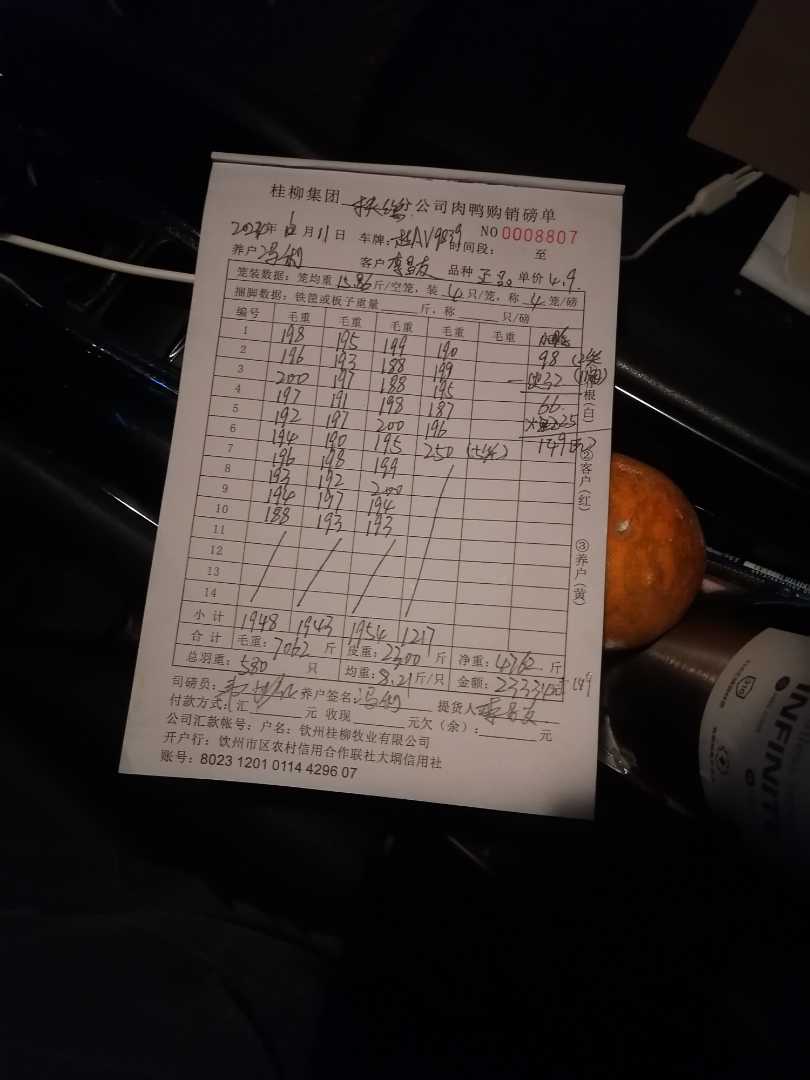 桂柳集团 公司肉鸭购销磅单
2020年12月11日 车牌: AV9839 时间段: 至 NO 0008807
养户 冯 客户 李昌友 品种 单价 4.9
笼装数据: 笼均重 15.86 斤/空笼, 装 4 只/笼, 称 4 笼/磅
捆脚数据: 铁筐或板子重量 斤, 称 只/磅
编号 毛重 毛重 毛重 毛重 毛重
1 198 195 199 190 98
2 196 193 188 199 32
3 200 197 188 195 66
4 197 191 198 187
5 192 197 200 196 149
6 194 190 195 250
7 196 198 199
8 193 192 200
9 194 197 194
10 188 193 193
11
12
13
14
小计 1948 1943 1954 1217
合计 毛重: 7062 斤 皮重: 2300 斤 净重: 4762 斤
总羽重: 580 只 均重: 8.21 斤/只 金额: 23331元 149
司磅员: 养户签名: 冯 提货人 李昌友
付款方式: 汇 元 收现 元欠(余): 元
公司汇款帐号: 户名: 钦州桂柳牧业有限公司
开户行: 钦州市区农村信用合作联社大垌信用社
账号: 8023 1201 0114 4296 07
根(白)
②客户(红)
③养户(黄)
INFINIT